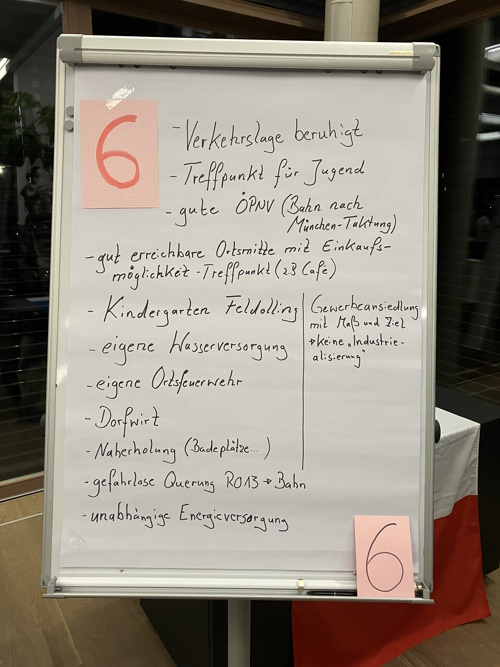 6
- Verkehrslage beruhigt
- Treffpunkt für Jugend
- gute ÖPNV (Bahn nach
München-Taktung)
- gut erreichbare Ortsmitte mit Einkaufs-
möglichkeit - Treffpunkt (z B Cafe)
- Kindergarten Feldolling
- eigene Wasserversorgung
- eigene Ortsfeuerwehr
- Dorfwirt
- Naherholung (Badeplätze...)
- gefahrlose Querung RO13 → Bahn
- unabhängige Energieversorgung
Gewerbeansiedlung
mit Maß und Ziel
→ keine „Industrie-
alisierung"
6